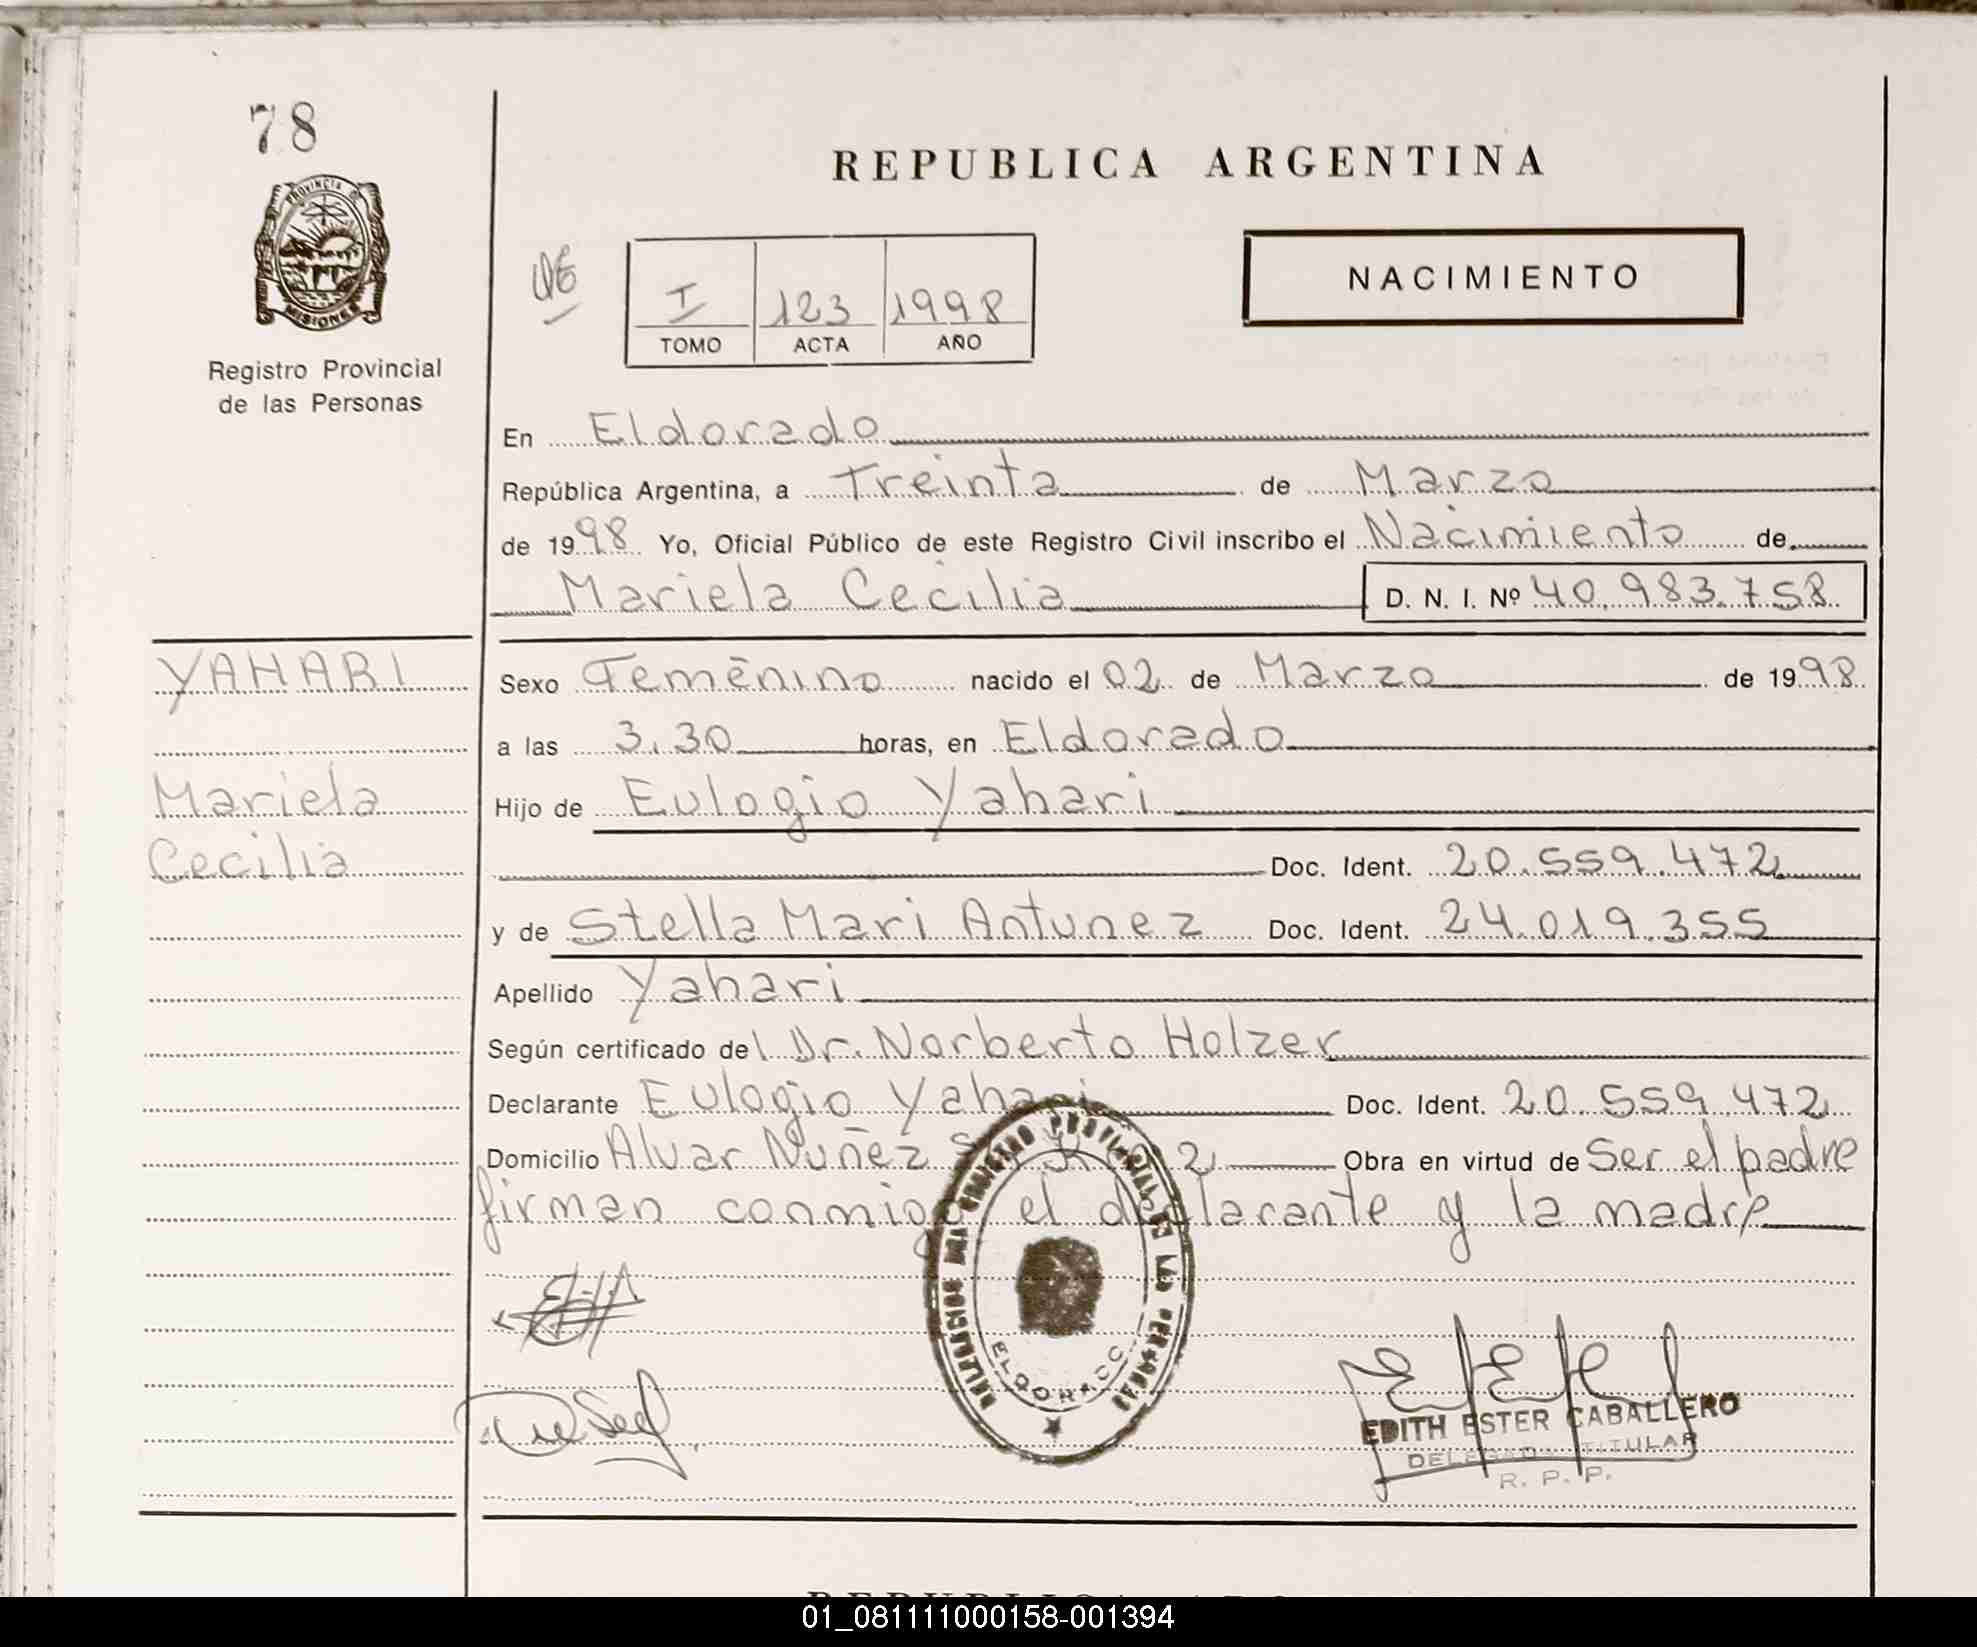 78
REPUBLICA ARGENTINA
PROVINCIA DE
MISIONES
Registro Provincial
de las Personas
NACIMIENTO
I 123 1998
TOMO ACTA AÑO
En Eldorado
República Argentina, a Treinta de Marzo
de 1998 Yo, Oficial Público de este Registro Civil inscribo el Nacimiento de
Mariela Cecilia D. N. I. Nº 40.983.758
YAHARI
Mariela
Cecilia
Sexo Femenino nacido el 02 de Marzo de 1998
a las 3.30 horas, en Eldorado
Hijo de Eulogio Yahari
Doc. Ident. 20.559.472
y de Stella Mari Antunez Doc. Ident. 24.019.355
Apellido Yahari
Según certificado del Dr. Norberto Holzer
Declarante Eulogio Yahari Doc. Ident. 20.559.472
Domicilio Alvar Nuñez 2 Obra en virtud de Ser el padre
firman conmigo el declarante y la madre
REGISTRO PROVINCIAL DE LAS PERSONAS
ELDORADO
EDITH ESTER CABALLERO
DELEGADA TITULAR
R. P. P.
01_081111000158-001394